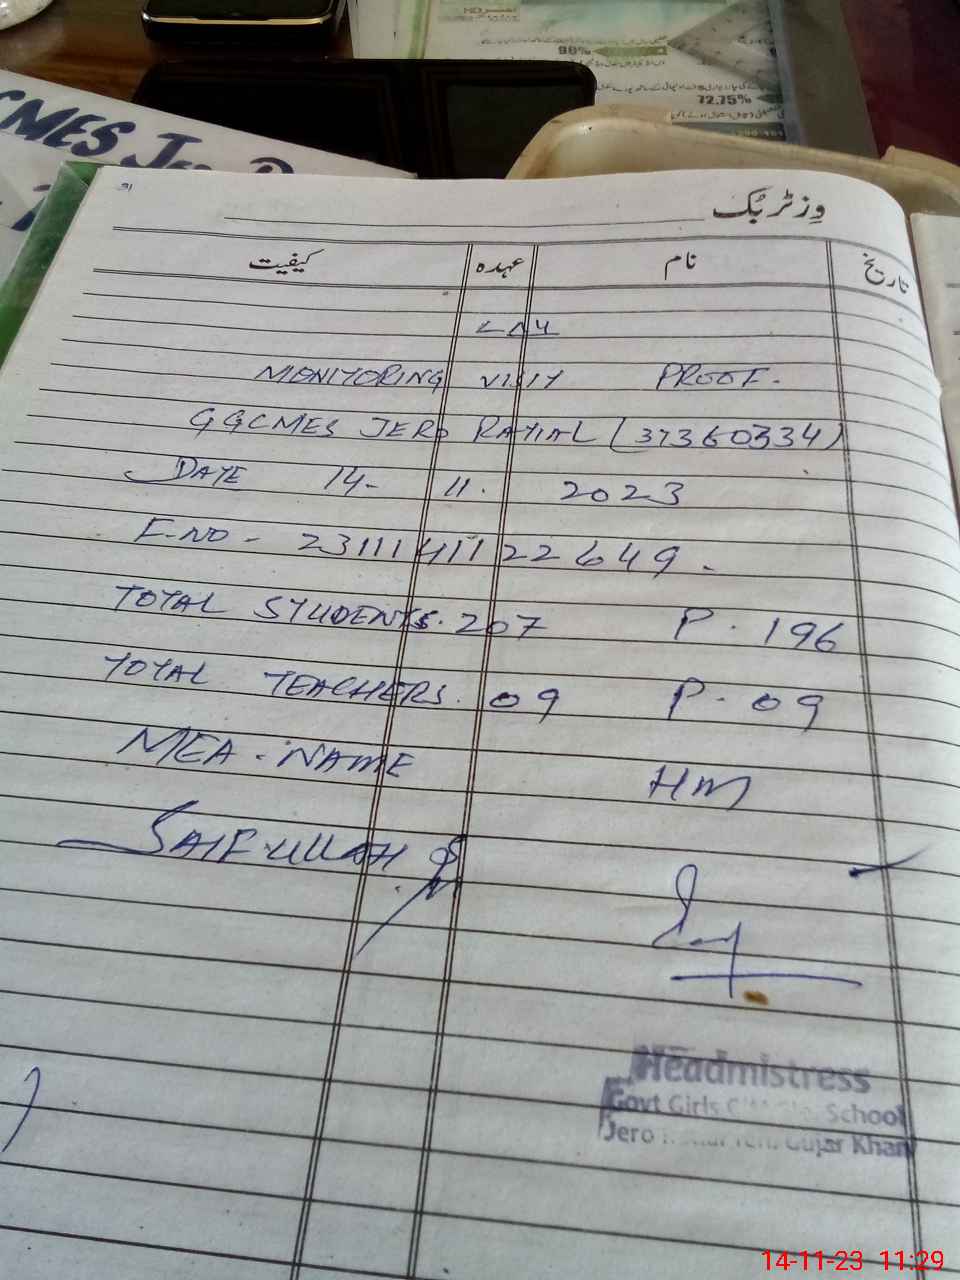 90%
72.75%
CMES
وزٹر بُک
تاریخ نام عہدہ کیفیت
MONITORING VISIT PROOF.
GGCMES JERO RATIAL (37360334)
DATE 14- 11. 2023
F-NO- 23111411122649.
TOTAL STUDENTS. 207 P. 196
TOTAL TEACHERS. 09 P. 09
MEA. NAME HM
SAIFULLAH
Headmistress
Govt Girls School
Jero Gujar Khan
14-11-23 11:29